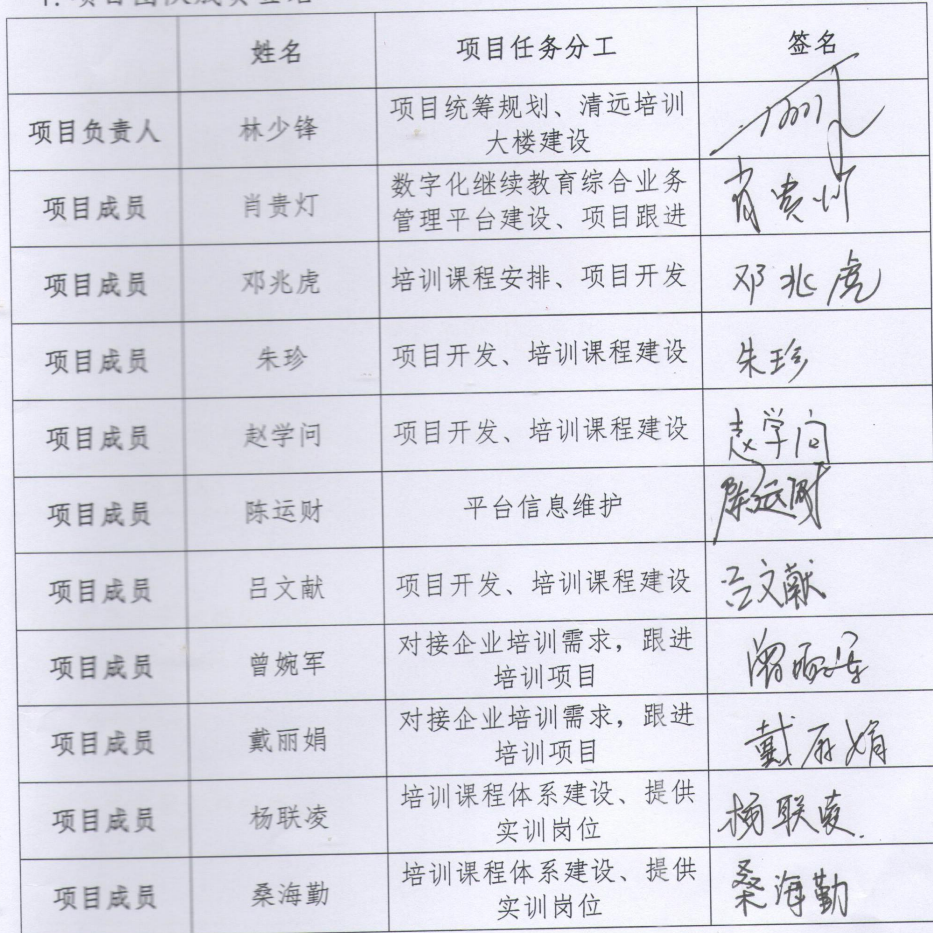 姓名 项目任务分工 签名
项目负责人 林少锋 项目统筹规划、清远培训
大楼建设
项目成员 肖贵灯 数字化继续教育综合业务 肖贵灯
管理平台建设、项目跟进
项目成员 邓兆虎 培训课程安排、项目开发 邓兆虎
项目成员 朱珍 项目开发、培训课程建设 朱珍
项目成员 赵学问 项目开发、培训课程建设 赵学问
项目成员 陈运财 平台信息维护 陈运财
项目成员 吕文献 项目开发、培训课程建设 吕文献
项目成员 曾婉军 对接企业培训需求，跟进 曾婉军
培训项目
项目成员 戴丽娟 对接企业培训需求，跟进 戴丽娟
培训项目
项目成员 杨联凌 培训课程体系建设、提供 杨联凌
实训岗位
项目成员 桑海勤 培训课程体系建设、提供 桑海勤
实训岗位